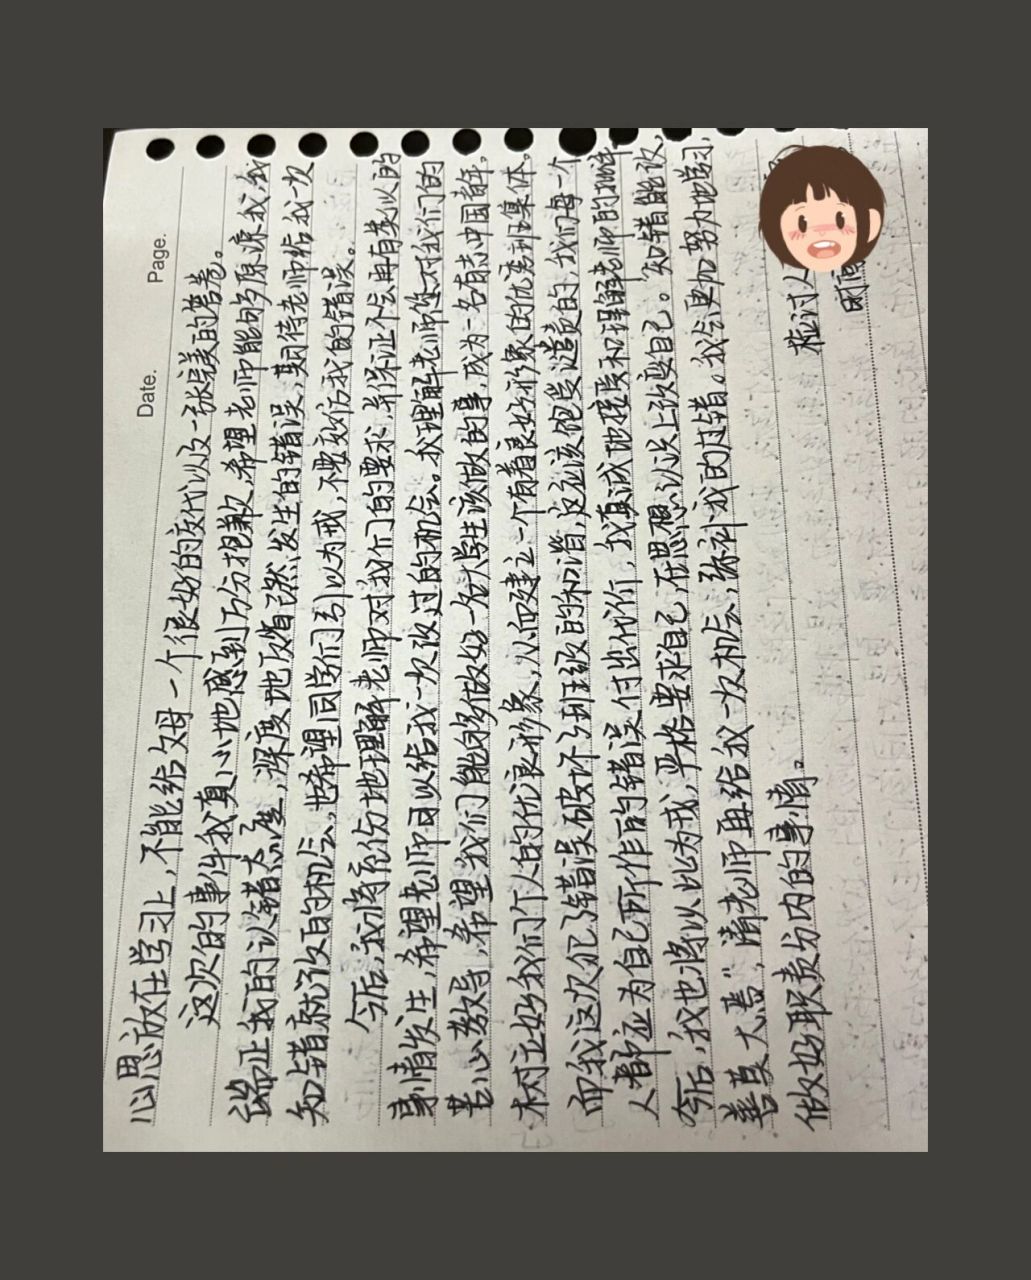 Date. Page.
心思放在学习上，不能给父母一个很好的交代以及一张满意的答卷。
这次的事件我真心地感到万分抱歉，希望老师能够原谅我，我
端正我的认错态度，深度地反省已然发生的错误，期待老师给我一次
知错就改的机会，也希望同学们引以为戒，不要效仿我的错误。
今后，我将充份地理解老师对我们的要求，并保证不会再有类似的
事情发生，希望老师可以给我一次改过的机会。我理解老师你对我们的
苦心教导，希望我们能够做好一名大学生该做的事，成为一名有志中国青年，
树立好我们个人的优良形象，从而建立一个有着良好形象的优秀班集体。
而我这次犯了错误破坏了班级的和谐，这应该饱受谴责的，我们每一个
人都应为自己所作的错误付出代价，我真诚地接受和理解老师的批评
今后，我也将以此为戒，严格要求自己，在思想认识上改变自己。“知错能改，
善莫大焉”，请老师再给我一次机会，弥补我的过错。我会更加努力地学习，
做好职责分内的事情。
检讨人
时间